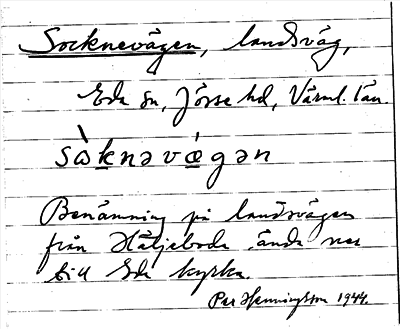 Socknevägen, landsväg,
Eda sn, Jösse hd, Värml. län.
sòknəvǽgən
Benämning på landsvägen
från Häljeboda ända ner
till Eda kyrka.
Per Henningsson 1944.